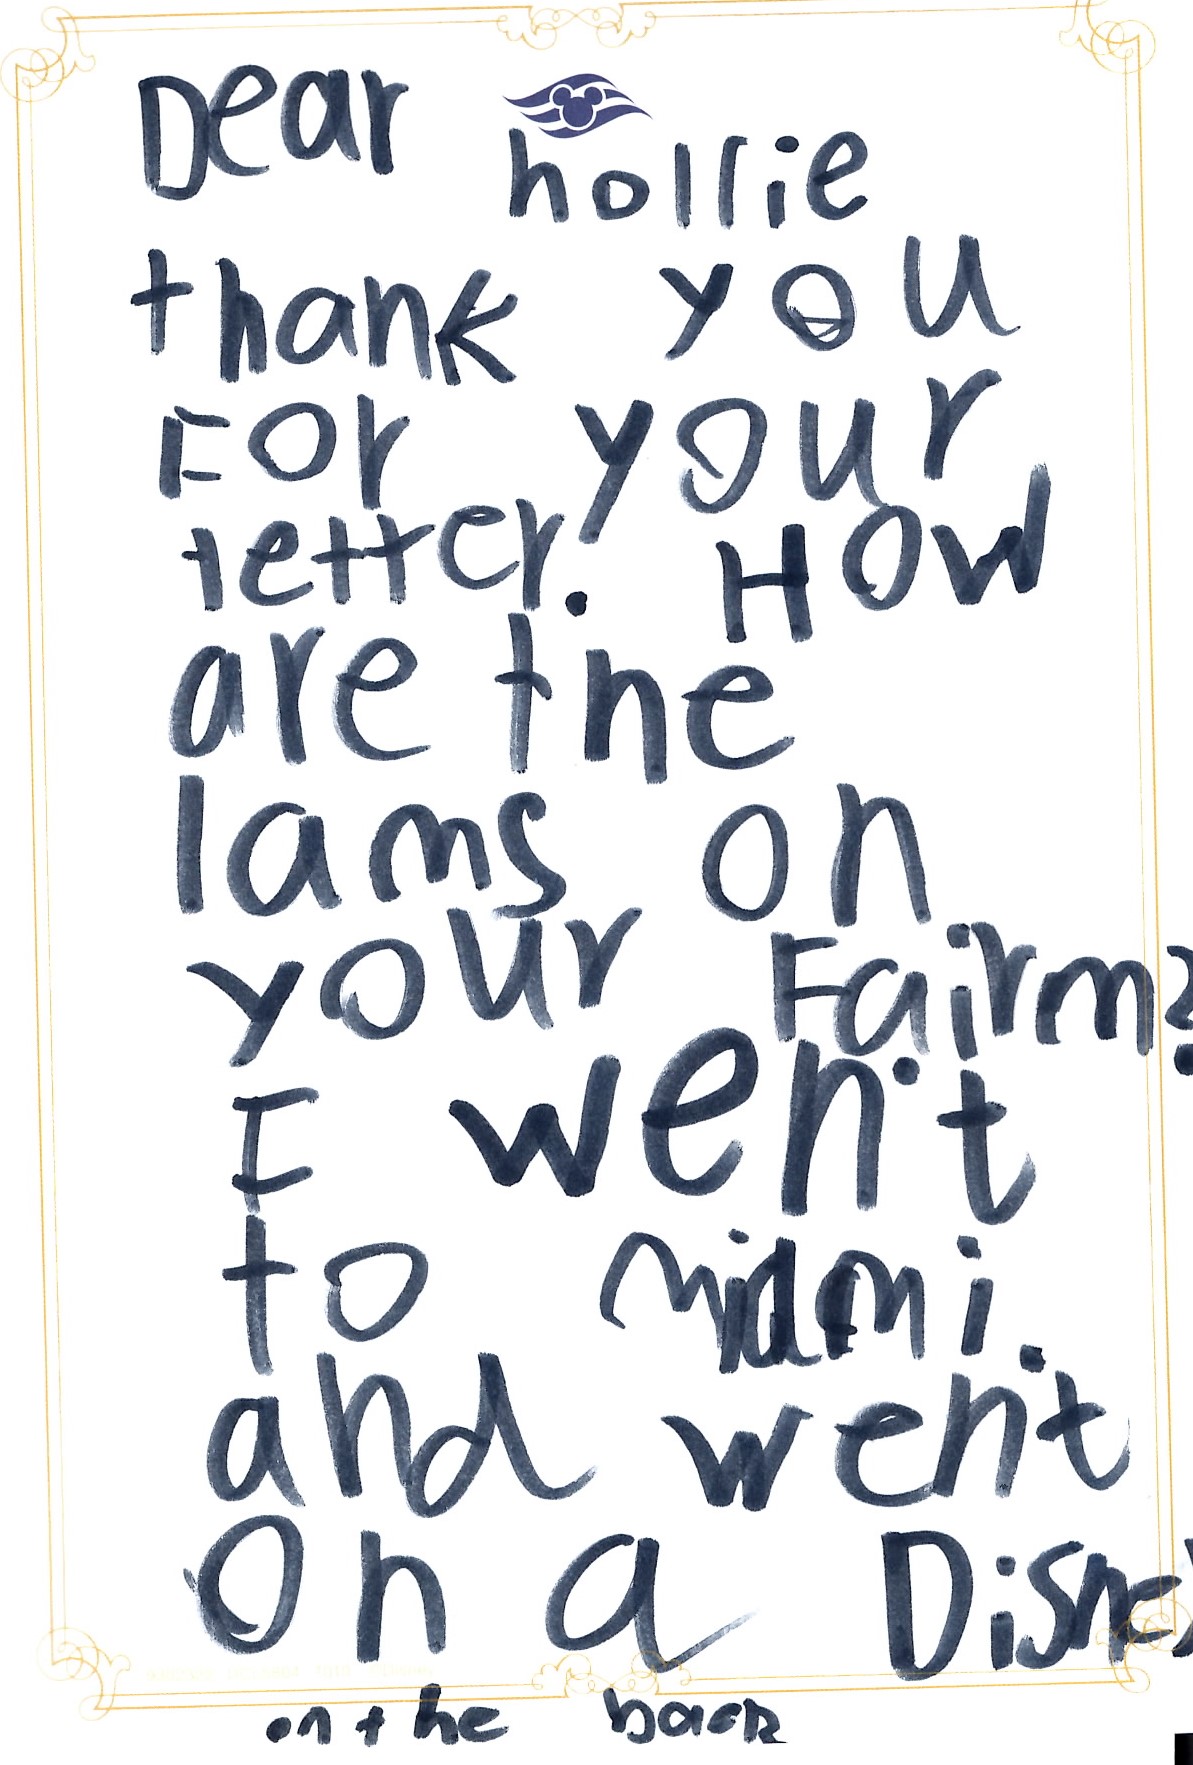 Dear hollie
thank you
For your
letter. How
are the
lams on
your Fairm?
I went
to miami.
and went
On a Disney
on the back